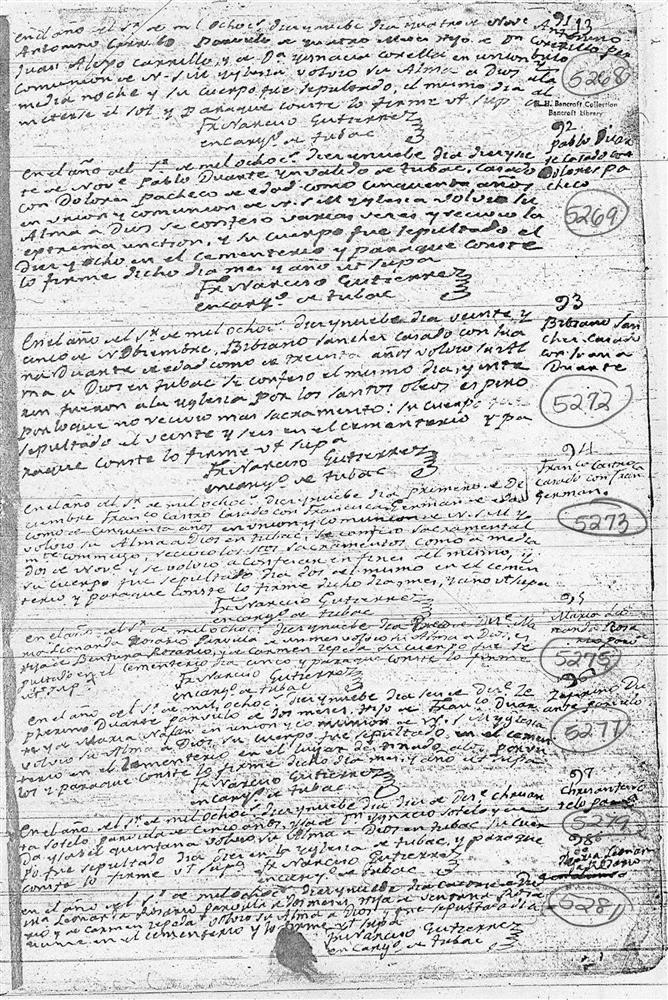 En el año del Sr. de mil ochoc.s diez y nuebe dia quatro de Nove
Antonino Carrillo Parvulo de quatro Meses hijo de Dn
Juan Alexo Carrillo, y de Da Ygnacia Corella en union y
Comunion de N. S. M. yglesia, volvio su Alma a Dios ala
media noche y su cuerpo fue sepultado, el mismo dia al
meterse el sol y paraque conste lo firme vt sup
Fr Narciso Gutierrez
encargo de tubac
91
13
Antonino
Carrillo par
bulo
5268
H. H. Bancroft Collection
Bancroft Library
En el año del Sr. de mil ochoc.s diez y nuebe dia diez y sie
te de Nove Pablo Duarte ynvalido de tubac, casado
con Dolores Pacheco de edad como cinquenta años
en union y comunion de N. S. M. yglesia volvio su
Alma a Dios se confeso varias veces y recivio la
extrema unction, y su cuerpo fue sepultado el
Diez y ocho en el cementereo y paraque conste
lo firme dicho dia mes y año vt supa
Fr Narciso Gutierrez
encargo de tubac
92
pablo Duar
te casado con
Dolores pa
checo
5269
En el año del Sr. de mil ochoc.s diez y nuebe dia veinte y
cinco de Nobiembre, Bibiano Sanchez casado con Jua
na Duarte de edad como de treinta años volvio su Al
ma a Dios en tubac se confeso el mismo dia, y inte
rin fueron ala yglesia por los santos oleos espiro
porloque no recivio mas sacramento: su cuerpo fue
sepultado el veinte y seis en el cementerio y pa
raque conste lo firme vt supa
Fr Narciso Gutierrez
encargo de tubac
93
Bibiano San
chez casado
con Juana
Duarte
5272
En el año del Sr. de mil ochoc.s diez y nuebe dia primero de Di
ciembre Franco Castro casado con Francisca German de edad
como de cinquenta años en union y comunion de N. S. M. y
volvio su Alma a Dios en tubac, se confeso sacramental
mte commigo, recivio los stos sacramentos como a media
dos de Nove y se volvio a confesar en fines del mismo, y
su cuerpo fue sepultado dia dos del mismo en el cemen
terio y paraque conste lo firme dicho dia, mes, y año vt supa
Fr Narciso Gutierrez
encargo de tubac
94
Franco Castro
casado con Fran
German
5273
En el año del Sr. de mil ochoc.s diez y nuebe dia
ria Leonarda Rosario Parvula volvio su Alma a Dios, es
hija de Bentura Rosario, y de Carmen Zepeda su cuerpo fue se
pultado en el cementerio dia cinco y paraque conste lo firme
vt supa
Fr Narciso Gutierrez
encargo de tubac
95
Maria
5275
En el año del Sr. de mil ochoc.s diez y nuebe dia seis de Dize Ze
pherino Duarte parvulo de dos meses, hijo de Franco Duar
te y de Maria en union y comunion de N. S. M. yglesia
volvio su Alma a Dios, su cuerpo fue sepultado en el cemen
terio en el lugar destinado alos parvu
los y paraque conste lo firme dicho dia mes, y año vt supa
Fr Narciso Gutierrez
encargo de tubac
96
Zeferino Du
arte parvulo
5277
En el año del Sr. de mil ochoc.s diez y nuebe dia diez de Dize
ta Sotelo parvula de cinco años, hija de Dn Ygnacio Sotelo y de
Da Ysabel quintana volvio su Alma a Dios en tubac su cuer
po fue sepultado dia en la yglesia de tubac, y paraque
conste lo firme vt supa
Fr Narciso Gutierrez
encargo de tubac
97
5279
En el año del Sr. de mil ochoc.s diez y nuebe dia catorce de Dize
Maria Leonarda Rosario parvula de dos meses, hija de Bentura Rosa
rio y de Carmen Zepeda volvio su Alma a Dios y fue sepultada dia
en el cementerio y lo firme vt supa
Fr Narciso Gutierrez
encargo de tubac
98
5281